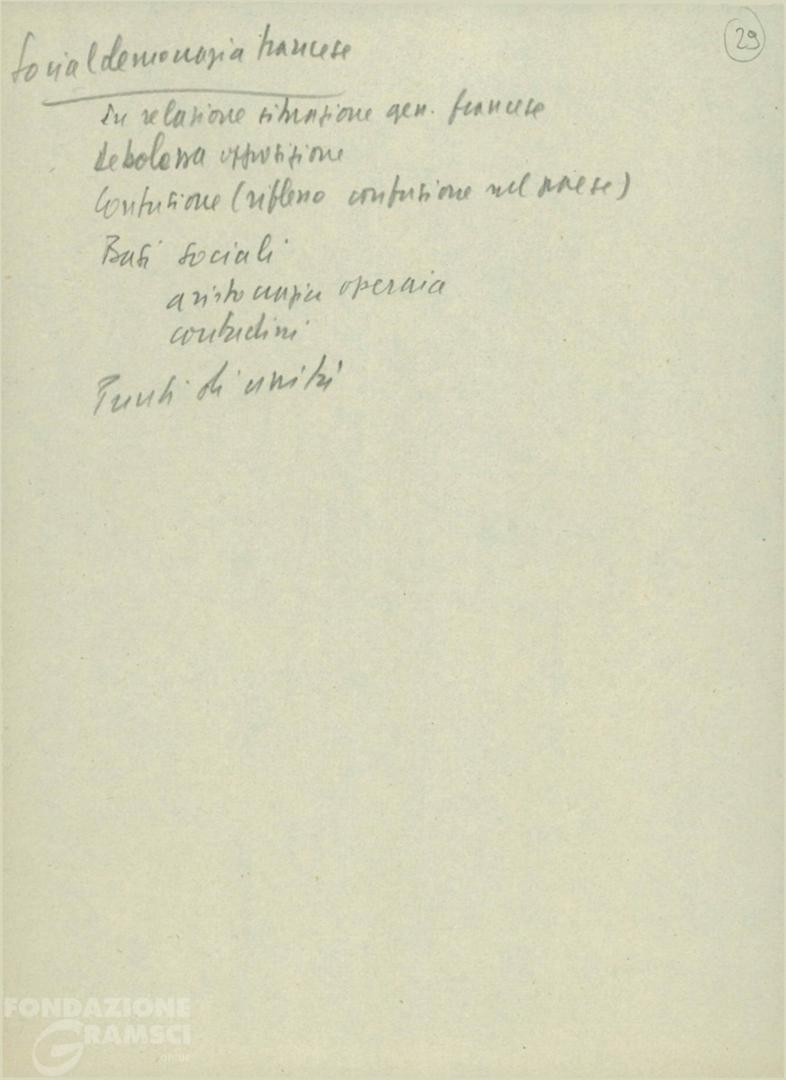 29
Socialdemocrazia francese
In relazione situazione gen. francese
Debolezza opposizione
Confusione (riflesso confusione nel paese)
Basi sociali
aristocrazia operaia
contadini
Punti di unità
FONDAZIONE
GRAMSCI
onlus